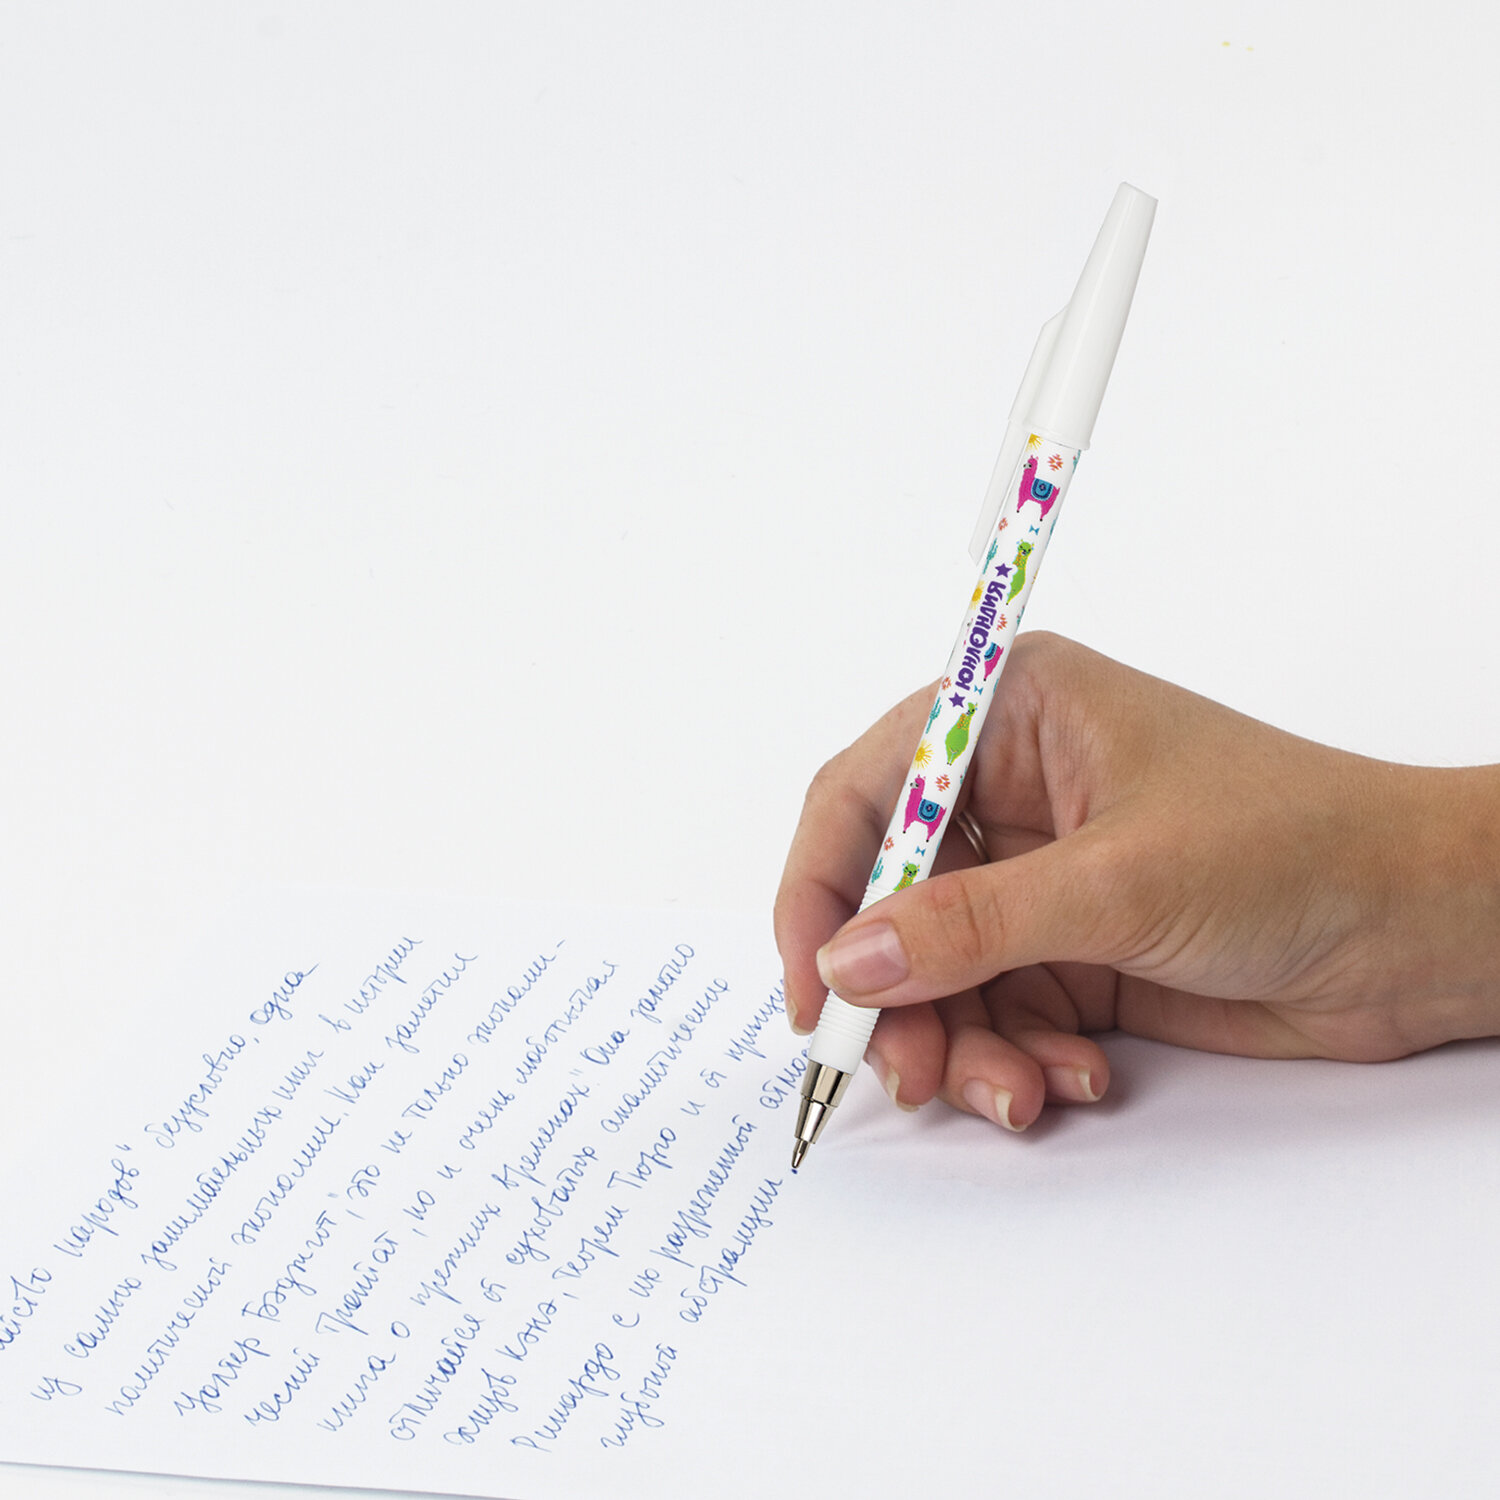 ЮНЛАНДИЯ
народов" безусловно, одна
из самых занимательных книг в истории
политической экономии. Как заметил
Уолтер Бэджгот, "это не только экономи-
ческий трактат, но и очень любопытная
книга о прежних временах". Она заметно
отличается от суховатых аналитических
Кэнэ, теорем Тюрго и от принци
Рикардо с их разреженной атмос
глубокой абстракции